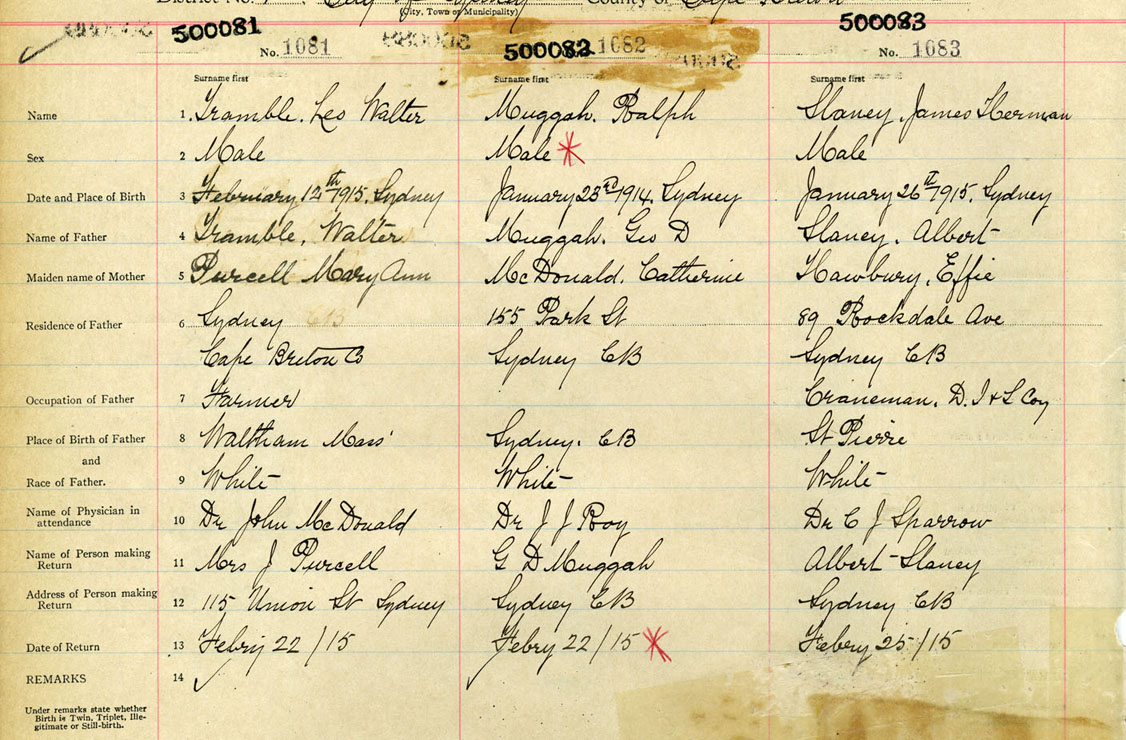 District No. City of Sydney County of Cape Breton
(City, Town or Municipality)
500081 500082 500083
No. 1081 1082 No. 1083
Surname first Surname first Surname first
Name 1. Tramble. Leo Walter Muggah. Ralph Slaney, James Herman
Sex 2 Male Male Male
Date and Place of Birth 3 February 12th 1915. Sydney January 23rd 1914. Sydney January 26th 1915, Sydney
Name of Father 4 Tramble, Walter Muggah. Geo D Slaney. Albert
Maiden name of Mother 5 Purcell Mary Ann McDonald. Catherine Hawbury, Effie
Residence of Father 6 Sydney 155 Park St 89 Rockdale Ave
Cape Breton Co Sydney CB Sydney CB
Occupation of Father 7 Farmer Craneman. D. I & S Coy
Place of Birth of Father 8 Waltham Mass Sydney. CB St Pierre
and
Race of Father. 9 White White White
Name of Physician in
attendance 10 Dr John McDonald Dr J J Roy Dr C J Sparrow
Name of Person making
Return 11 Mrs J Purcell G D Muggah Albert Slaney
Address of Person making
Return 12 115 Union St Sydney Sydney CB Sydney CB
Date of Return 13 Febry 22/15 Febry 22/15 Febry 25/15
REMARKS 14
Under remarks state whether
Birth is Twin, Triplet, Ille-
gitimate or Still-birth.